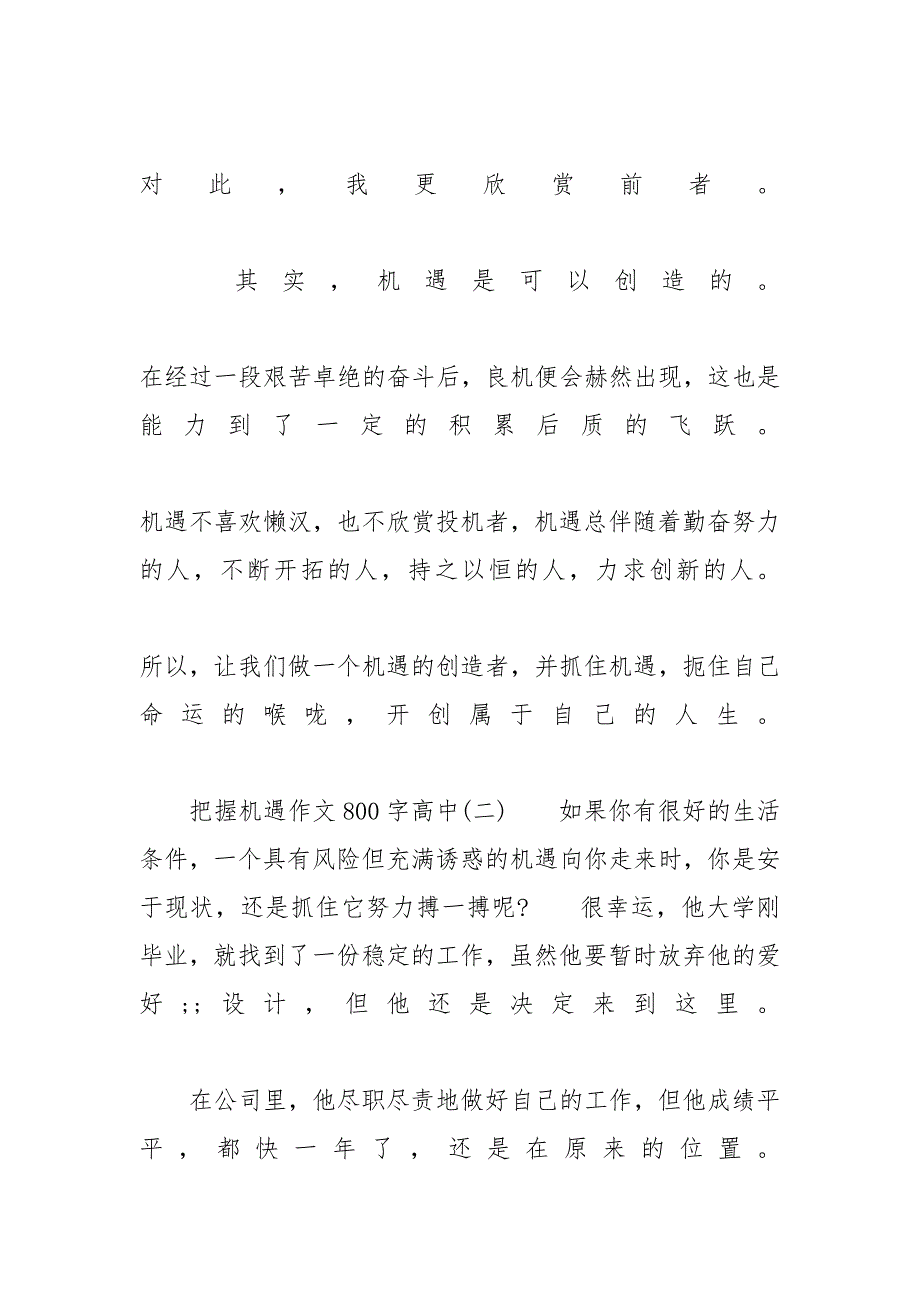 对此，我更欣赏前者。
其实，机遇是可以创造的。
在经过一段艰苦卓绝的奋斗后，良机便会赫然出现，这也是
能力到了一定的积累后质的飞跃。
机遇不喜欢懒汉，也不欣赏投机者，机遇总伴随着勤奋努力
的人，不断开拓的人，持之以恒的人，力求创新的人。
所以，让我们做一个机遇的创造者，并抓住机遇，扼住自己
命运的喉咙，开创属于自己的人生。
把握机遇作文800字高中(二)　　如果你有很好的生活
条件，一个具有风险但充满诱惑的机遇向你走来时，你是安
于现状，还是抓住它努力搏一搏呢?　　很幸运，他大学刚
毕业，就找到了一份稳定的工作，虽然他要暂时放弃他的爱
好;;设计，但他还是决定来到这里。
在公司里，他尽职尽责地做好自己的工作，但他成绩平
平，都快一年了，还是在原来的位置。